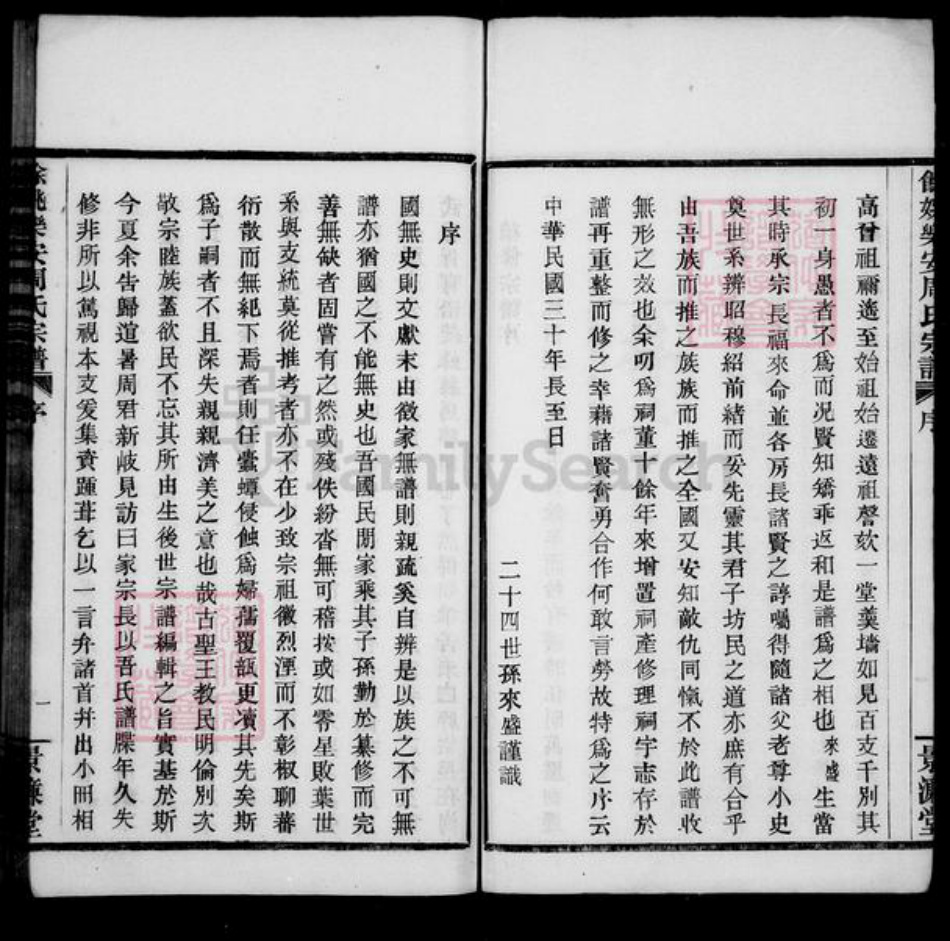 高曾祖禰遙至始祖始遷遠祖謦欬一堂羹墻如見百支千別其
初一身愚者不爲而况賢知矯乖返和是譜爲之相也來盛生當
其時承宗長福來命並各房長諸賢之諄囑得隨諸父老尊小史
奠世系辨昭穆紹前緒而妥先靈其君子坊民之道亦庶有合乎
由吾族而推之族族而推之全國又安知敵仇同愾不於此譜收
無形之效也余叨爲祠董十餘年來增置祠產修理祠宇志存於
譜再重整而修之幸藉諸賢奮勇合作何敢言勞故特爲之序云
中華民國三十年長至日
二十四世孫來盛謹識
餘姚樂安周氏宗譜 序 景濂堂
序
國無史則文獻末由徵家無譜則親疏奚自辨是以族之不可無
譜亦猶國之不能無史也吾國民閒家乘其子孫勤於纂修而完
善無缺者固嘗有之然或殘佚紛沓無可稽按或如零星敗葉世
系與支統莫從推考者亦不在少致宗祖徽烈湮而不彰椒聊蕃
衍散而無紀下焉者則任蠹蟫侵蝕爲婦孺覆瓿更瀆其先矣斯
爲子嗣者不且深失親親濟美之意也哉古聖王教民明倫別次
敬宗睦族蓋欲民不忘其所由生後世宗譜編輯之旨實基於斯
今夏余告歸道暑周君新岐見訪曰家宗長以吾氏譜牒年久失
修非所以篤視本支爰集賫踵葺乞以一言弁諸首幷出小冊相
餘姚樂安周氏宗譜 序 一 景濂堂
FamilySearch